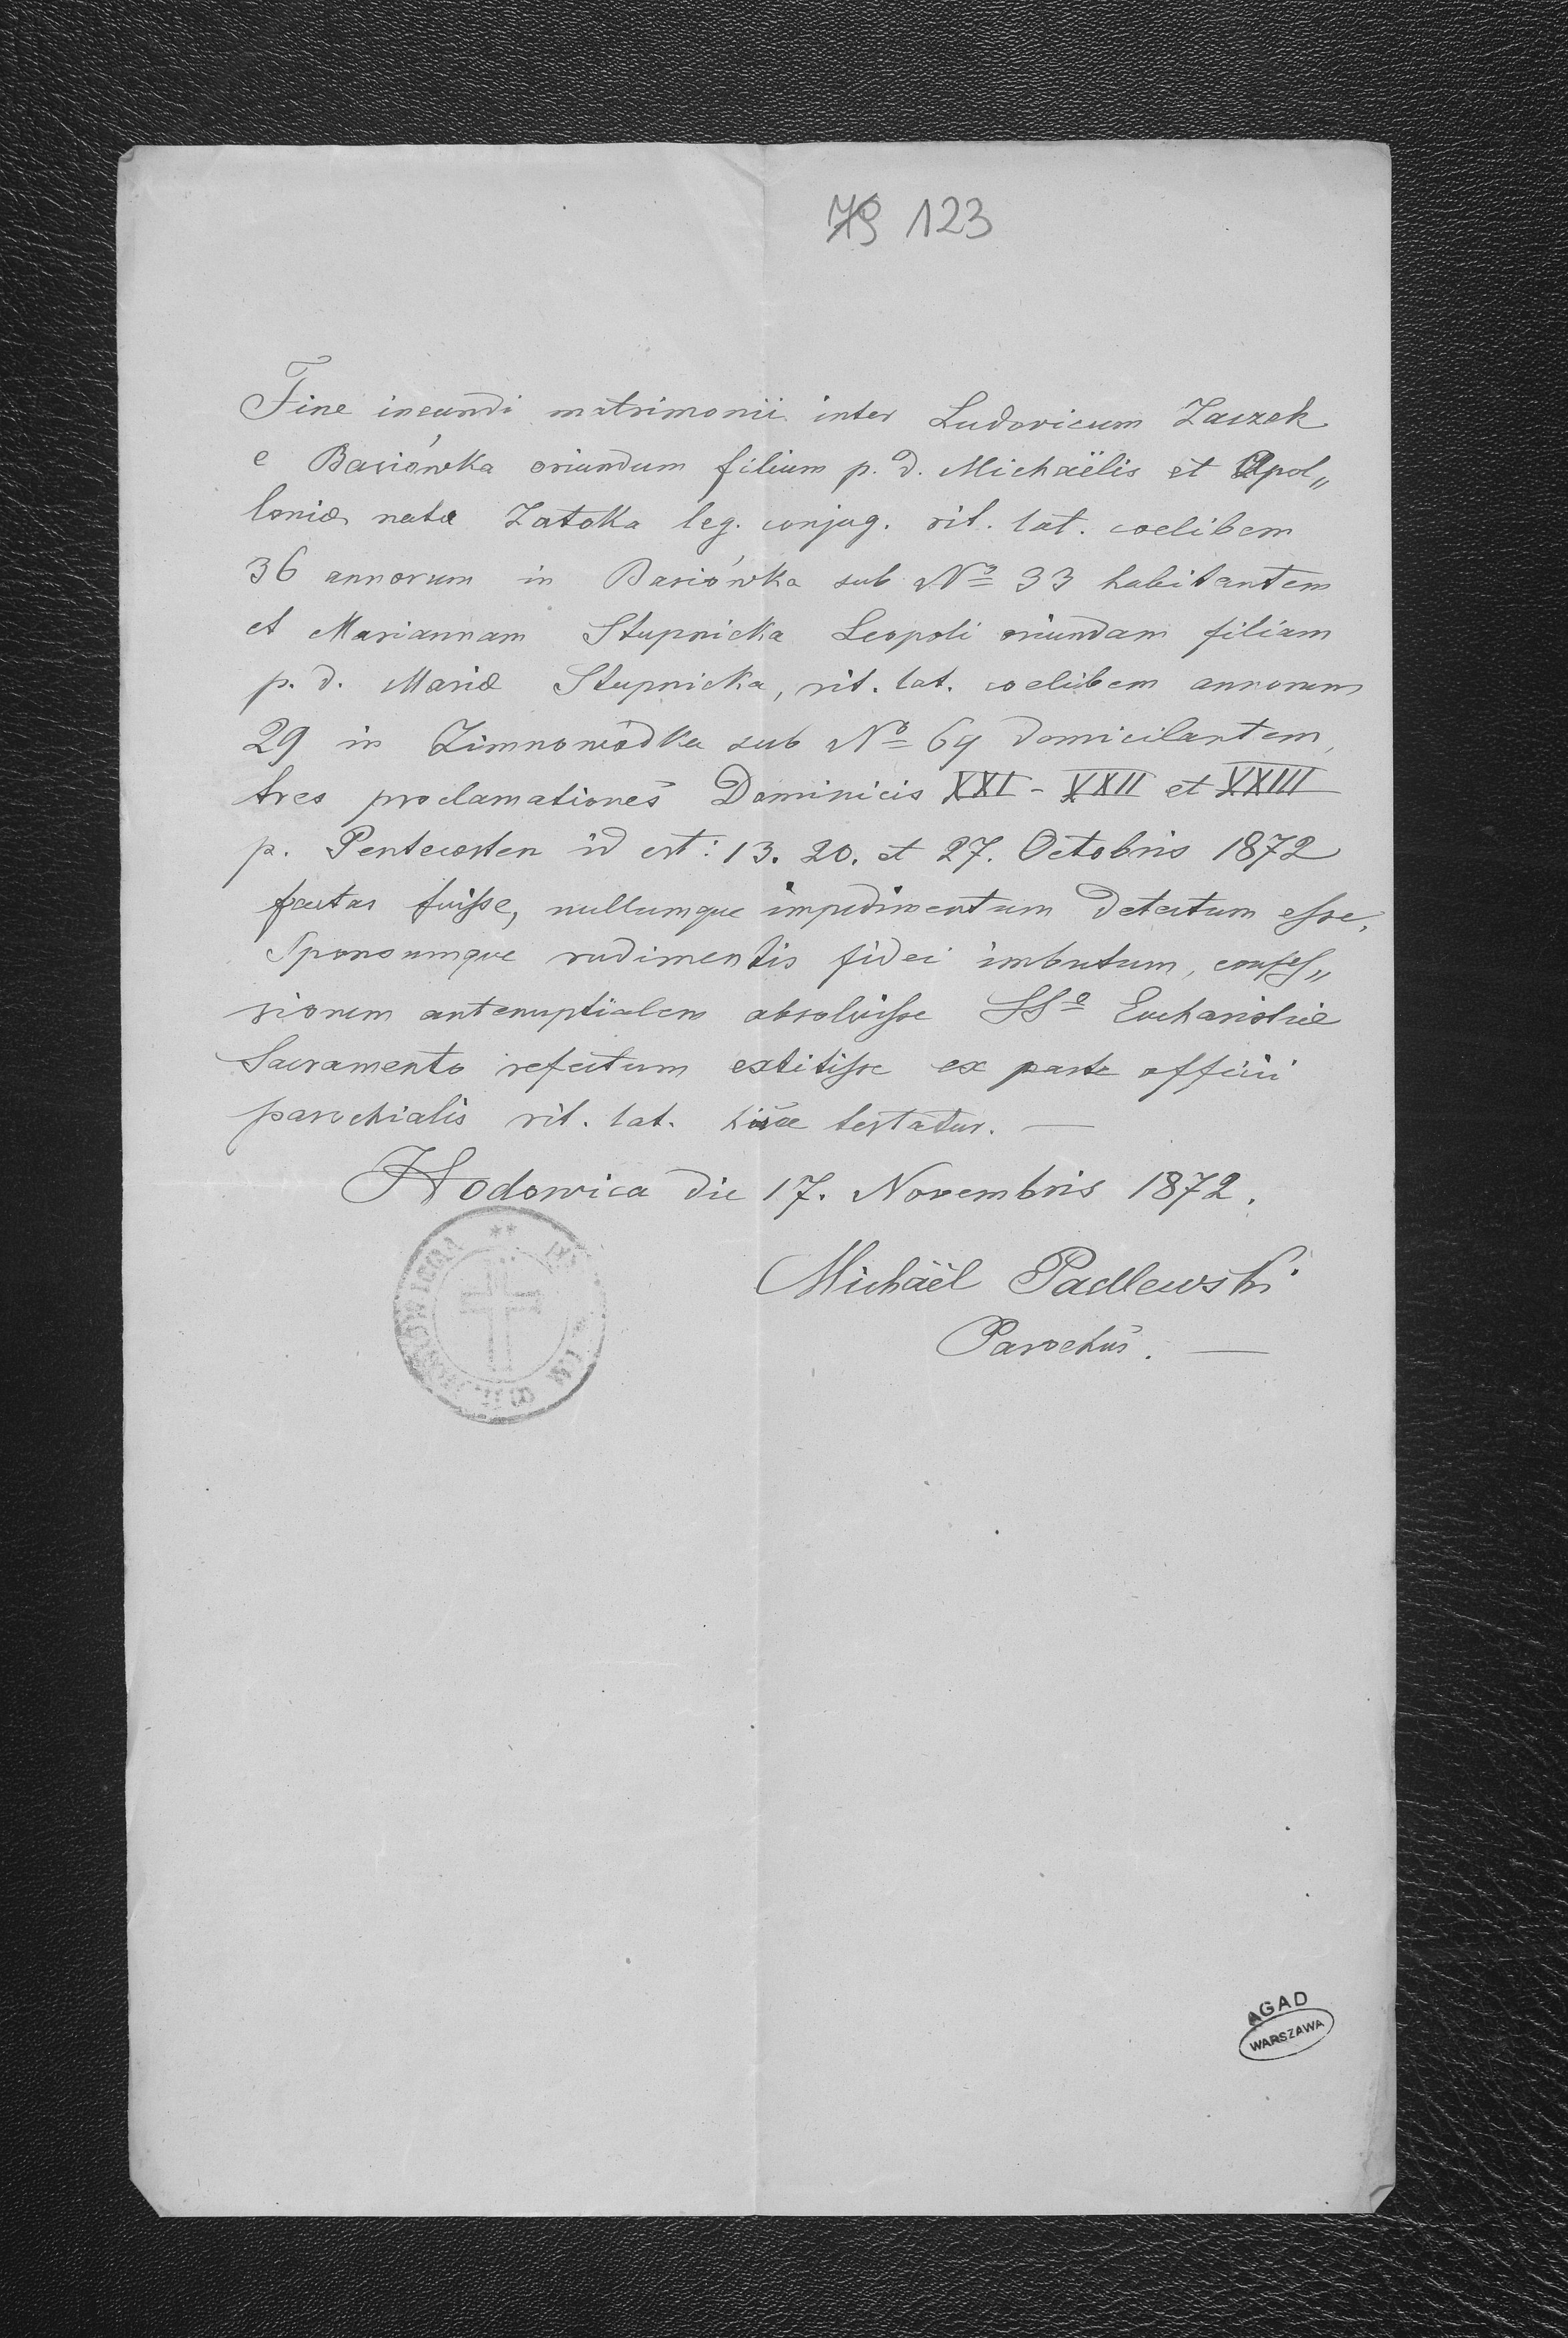 79 123
Fine ineundi matrimonii inter Ludovicum Zaczek
e Basiówka oriundum filium p. d. Michaëlis et Apol„
loniæ natæ Zatoka leg. conjug. rit. lat. coelibem
36 annorum in Basiówka sub No 33 habitantem
et Mariannam Stupnicka Leopoli oriundam filiam
p. d. Mariæ Stupnicka, rit. lat. coelibem annorum
29 in Zimnowódka sub No 64 domicilantem,
tres proclamationes Dominicis XXI - XXII et XXIII
p. Pentecosten id est: 13. 20. et 27. Octobris 1872
factas fuisse, nullumque impedimentum detectum esse,
Sponsumque rudimentis fidei imbutum, confes„
sionem antenuptialem absolvisse SSo Eucharistiæ
Sacramento refectum extitisse ex parte officii
parochialis rit. lat. hisce testatur. —
Hodowica die 17. Novembris 1872.
Michäel Padlewski
Parochus. —
AGAD
WARSZAWA